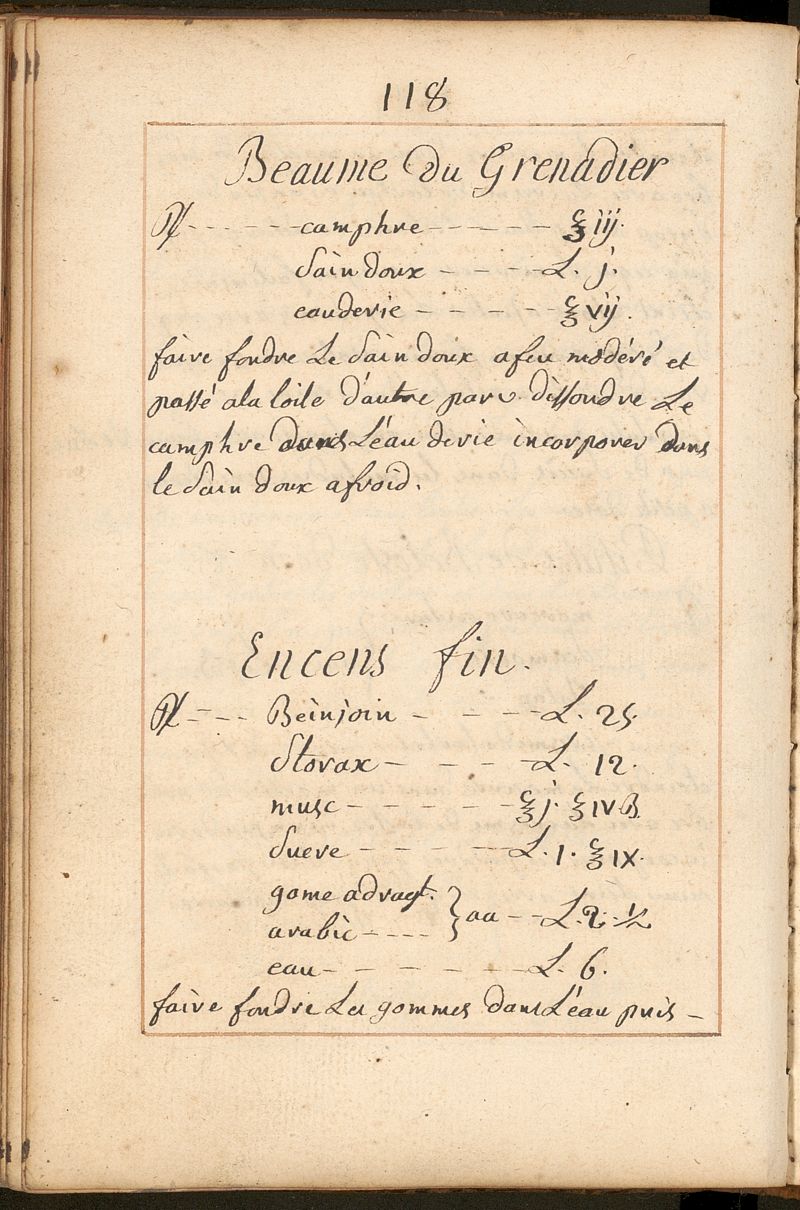 118
Beaume du Grenadier
℞ - - - - - - camphre - - - - - - ℥ iij.
sain doux - - - - L. j.
eau devie - - - - - ℥ vij.
faire fondre Le sain doux afeu modéré et
passé ala toile d'autre par dissoudre Le
camphre dans L'eau devie incorporer dans
le sain doux afroid.
Encens fin.
℞ - - - - Beinjoin - - - - - L. 25.
Storax - - - - - L. 12.
musc - - - - - - ℥ j. ℥ iv ß
sucre - - - - - - L. 1. ℥ IX.
gome adragt. } aa - - L. 2. ½
arabic - - - -
eau - - - - - - - L. 6.
faire fondre Les gommes dans L'eau puis -